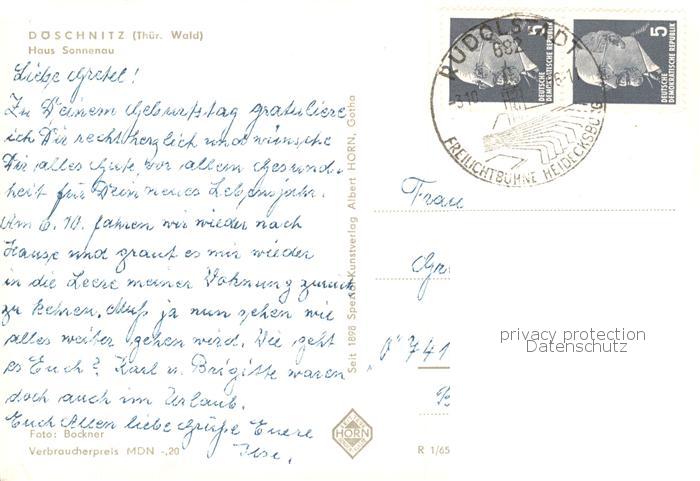 DÖSCHNITZ (Thür. Wald)
Haus Sonnenau
Liebe Gretel!
Zu Deinem Geburtstag gratuliere
ich Dir recht herzlich und wünsche
Dir alles Gute, vor allem Gesund-
heit für Dein neues Lebensjahr.
Am 6.10. fahren wir wieder nach
Hause und graut es mir wieder
in die Leere meiner Wohnung zurück
zu kehren. Muß ja nun sehen wie
alles weiter gehen wird. Wie geht
es Euch? Karl u. Brigitte waren
doch auch im Urlaub.
Euch Allen liebe Grüße Euere
Ilse.
Foto: Bockner
Verbraucherpreis MDN -,20
Seit 1898 Spezial-Kunstverlag Albert HORN, Gotha
HORN
R 1/65
RUDOLSTADT
692
-3.10
FREILICHTBÜHNE HEIDECKSBURG
5
DEUTSCHE
DEMOKRATISCHE REPUBLIK
5
DEUTSCHE
DEMOKRATISCHE REPUBLIK
Frau
Gr
741
privacy protection
Datenschutz